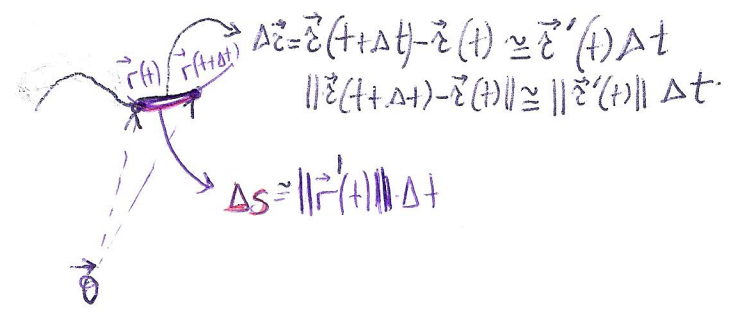 Δr⃗ = r⃗(t+Δt) - r⃗(t) ≅ r⃗'(t) Δt
||r⃗(t+Δt) - r⃗(t)|| ≅ ||r⃗'(t)|| Δt.
r⃗(t) r⃗(t+Δt)
Δs ≅ ||r⃗'(t)|| · Δt
0⃗